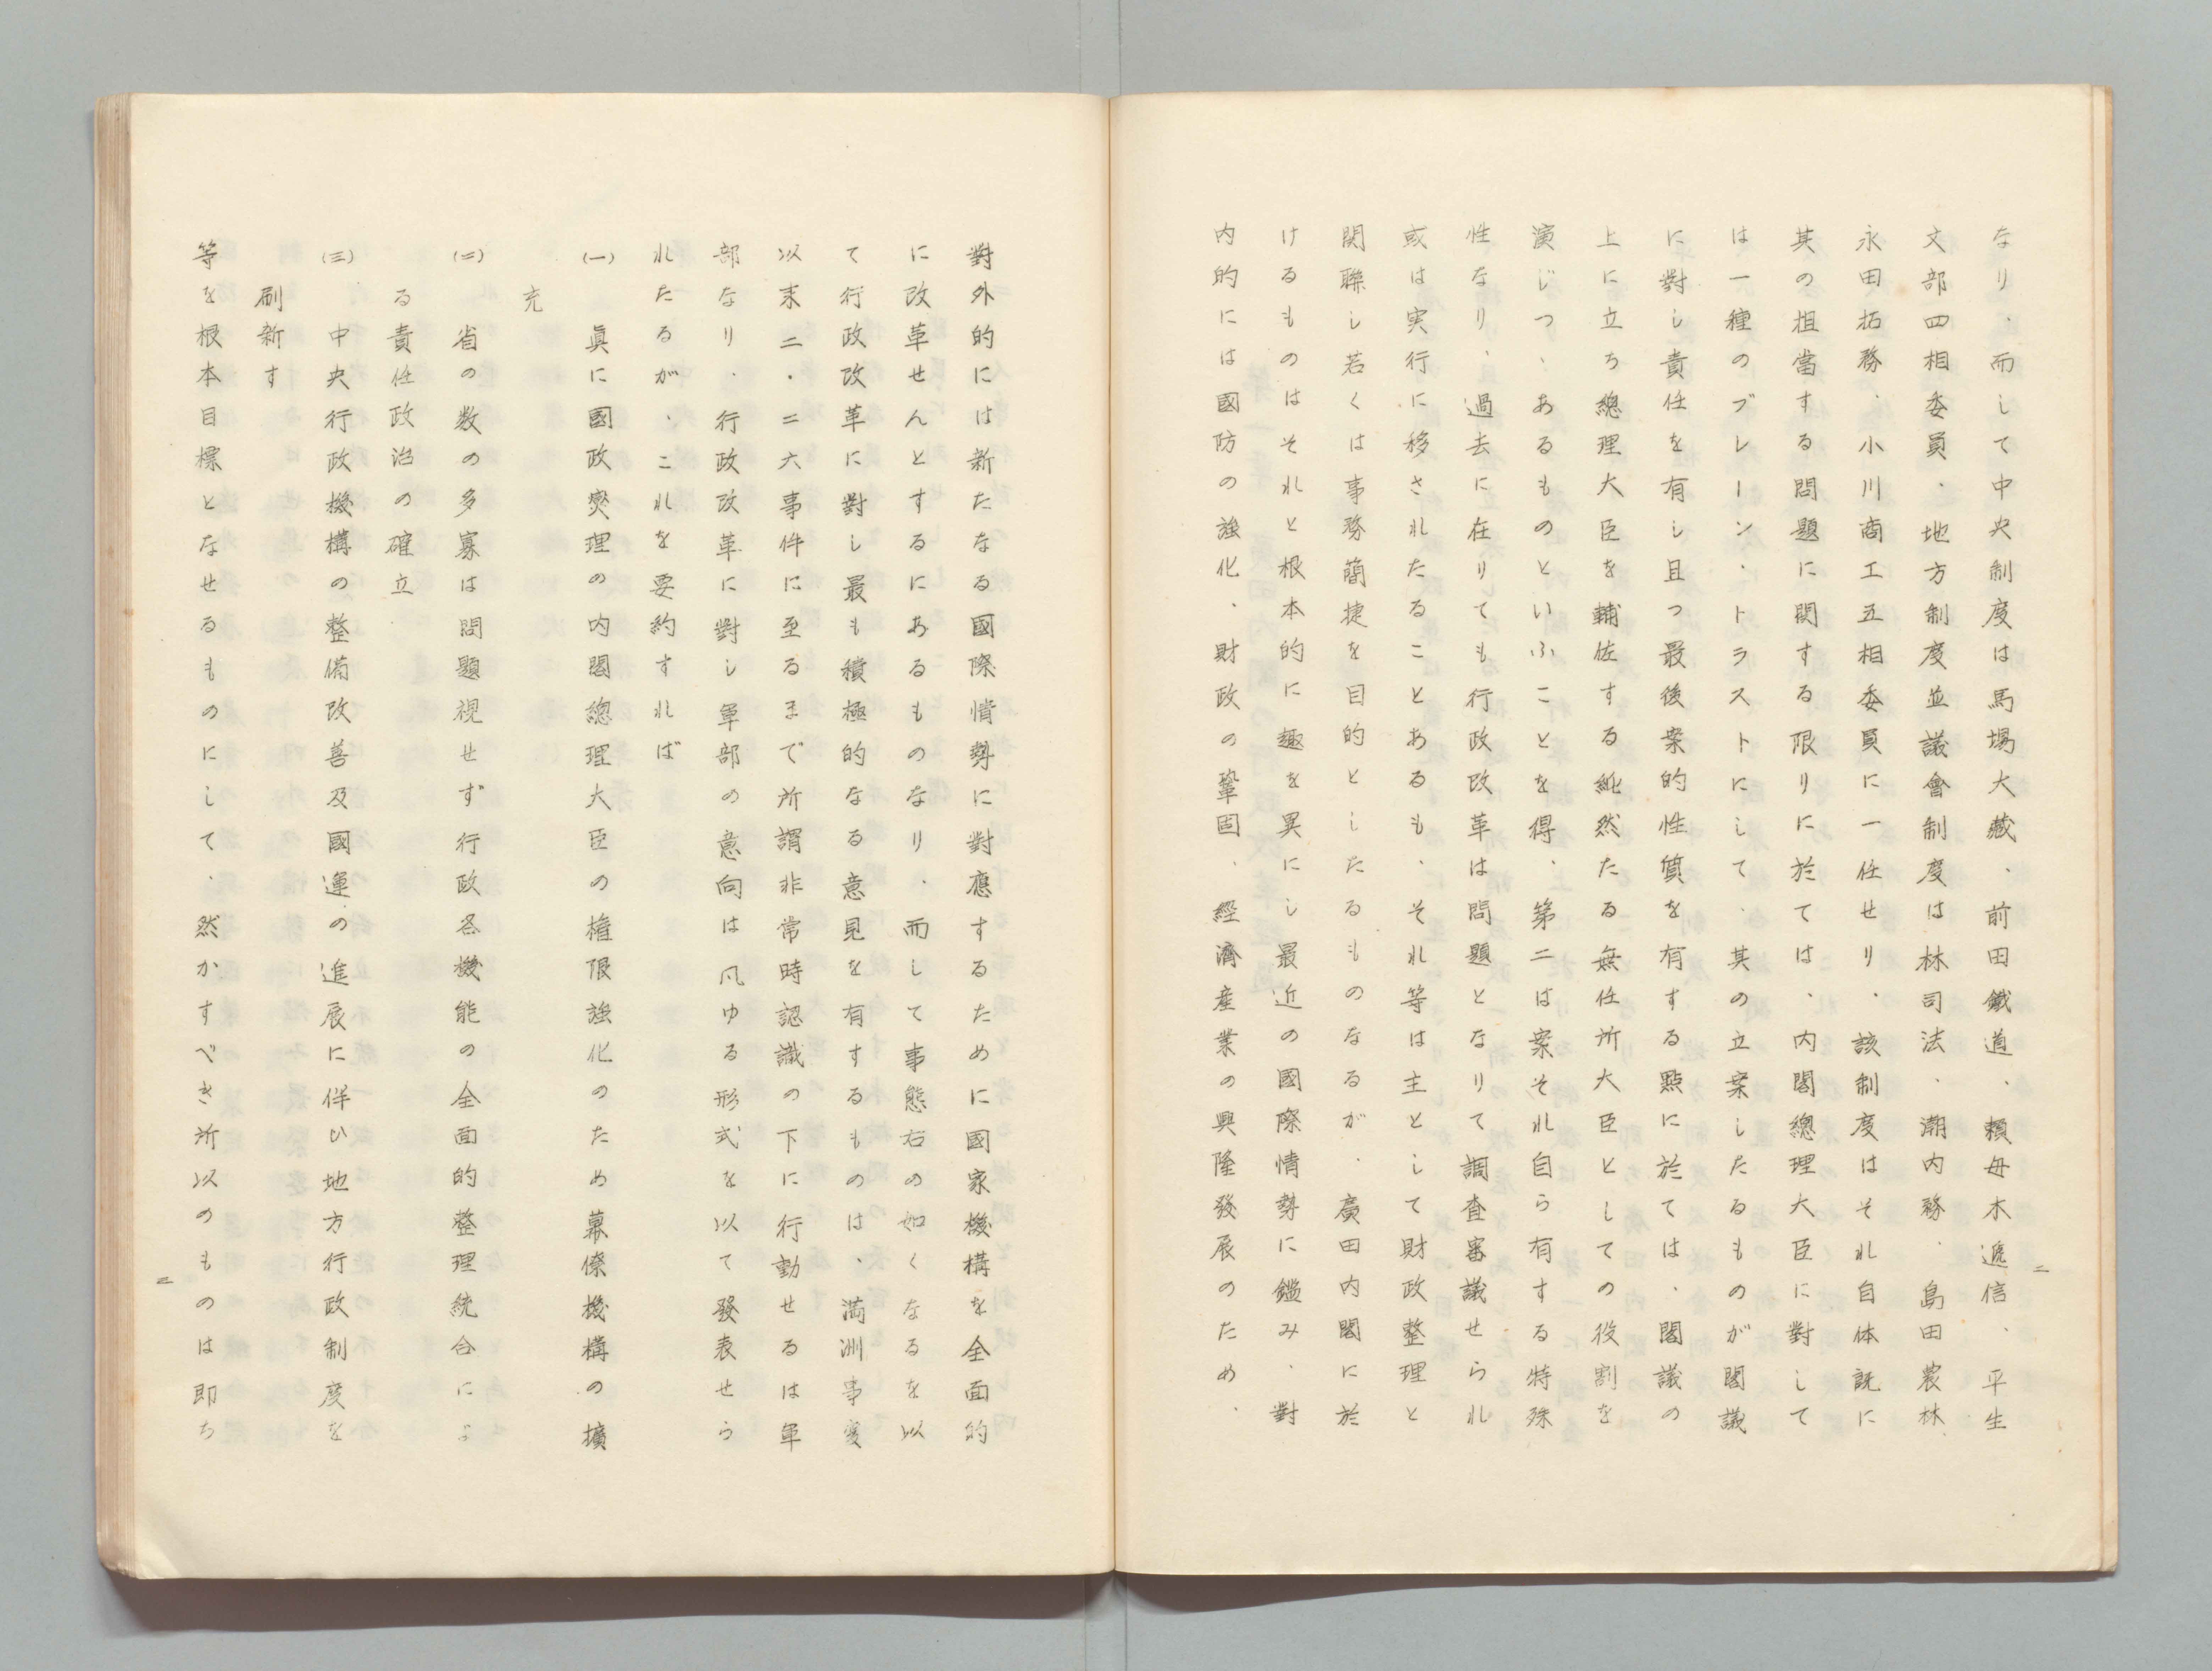 なり、而して中央制度は馬場大藏、前田鐵道、頼母木遞信、平生
文部四相委員、地方制度並議會制度は林司法、潮内務、島田農林
永田拓務、小川商工五相委員に一任せり、該制度はそれ自体既に
其の担當する問題に関する限りに於ては、内閣總理大臣に對して
は一種のブレーン・トラストにして、其の立案したるものが閣議
に對し責任を有し且つ最後案的性質を有する點に於ては、閣議の
上に立ち總理大臣を輔佐する純然たる無任所大臣としての役割を
演じつゝあるものといふことを得、第二は案それ自ら有する特殊
性なり、過去に在りても行政改革は問題となりて調査審議せられ
或は実行に移されたることあるも、それ等は主として財政整理と
関聯し若くは事務簡捷を目的としたるものなるが、廣田内閣に於
けるものはそれと根本的に趣を異にし最近の國際情勢に鑑み、對
内的には國防の強化、財政の鞏固、經濟産業の興隆發展のため、
二
對外的には新たなる國際情勢に對應するために國家機構を全面的
に改革せんとするにあるものなり、而して事態右の如くなるを以
て行政改革に對し最も積極的なる意見を有するものは、満洲事変
以来二・二六事件に至るまで所謂非常時認識の下に行動せるは軍
部なり、行政改革に對し軍部の意向は凡ゆる形式を以て發表せら
れたるが、これを要約すれば
(一)　眞に國政爕理の内閣總理大臣の権限強化のため幕僚機構の擴
充
(二)　省の数の多寡は問題視せず行政各機能の全面的整理統合によ
る責任政治の確立
(三)　中央行政機構の整備改善及國運の進展に伴ひ地方行政制度を
刷新す
等を根本目標となせるものにして、然かすべき所以のものは即ち
三